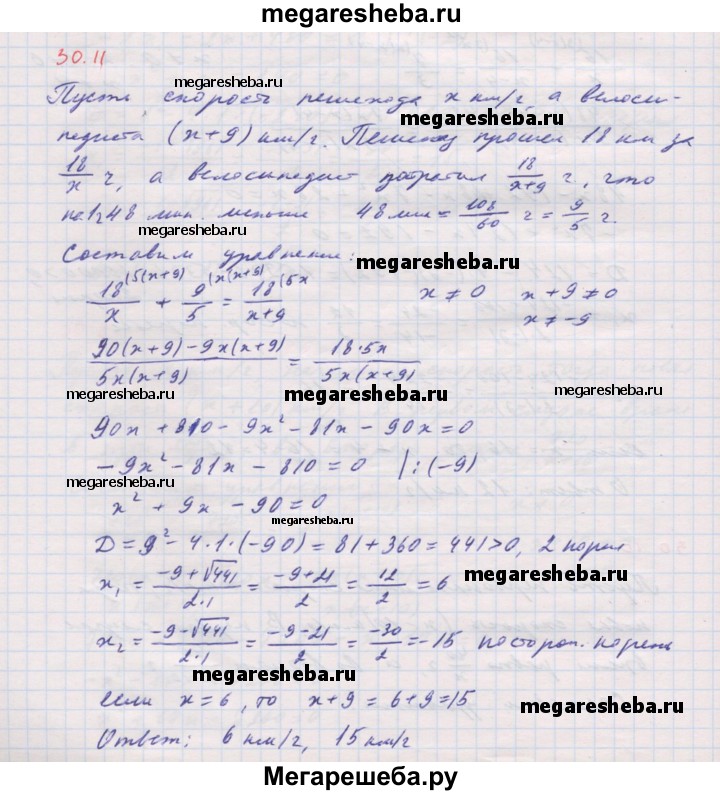 megaresheba.ru
30.11
megaresheba.ru
Пусть скорость пешехода x км/г, а велоси-
педиста (x+9) км/г. Пешеход прошел 18 км за
megaresheba.ru
18/x г, а велосипедист потратил 18/(x+9) г., что
на 1г 48 мин. меньше 48 мин = 108/60 г = 9/5 г.
megaresheba.ru
Составим уравнение:
18/x |5(x+9) + 9/5 |x(x+9) = 18/(x+9) |5x x ≠ 0 x+9 ≠ 0
x ≠ -9
(90(x+9) - 9x(x+9))/(5x(x+9)) = (18·5x)/(5x(x+9))
megaresheba.ru
megaresheba.ru
megaresheba.ru
90x + 810 - 9x² - 81x - 90x = 0
-9x² - 81x - 810 = 0 |:(-9)
megaresheba.ru
x² + 9x - 90 = 0
megaresheba.ru
D = 9² - 4·1·(-90) = 81 + 360 = 441 > 0, 2 корня
x₁ = (-9+√441)/(2·1) = (-9+21)/2 = 12/2 = 6
megaresheba.ru
x₂ = (-9-√441)/(2·1) = (-9-21)/2 = -30/2 = -15 посторон. корень
megaresheba.ru
если x = 6, то x+9 = 6+9 = 15
megaresheba.ru
Ответ: 6 км/г, 15 км/г
Мегарешеба.ру